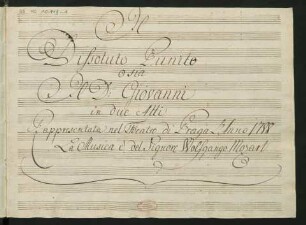 Il
Dissoluto Punito
o sia
Il D. Giovanni
in due Atti
Rappresentata nel Theatro di Praga l'Anno 1788
La Musica è del Signore Wolfgango Mozart